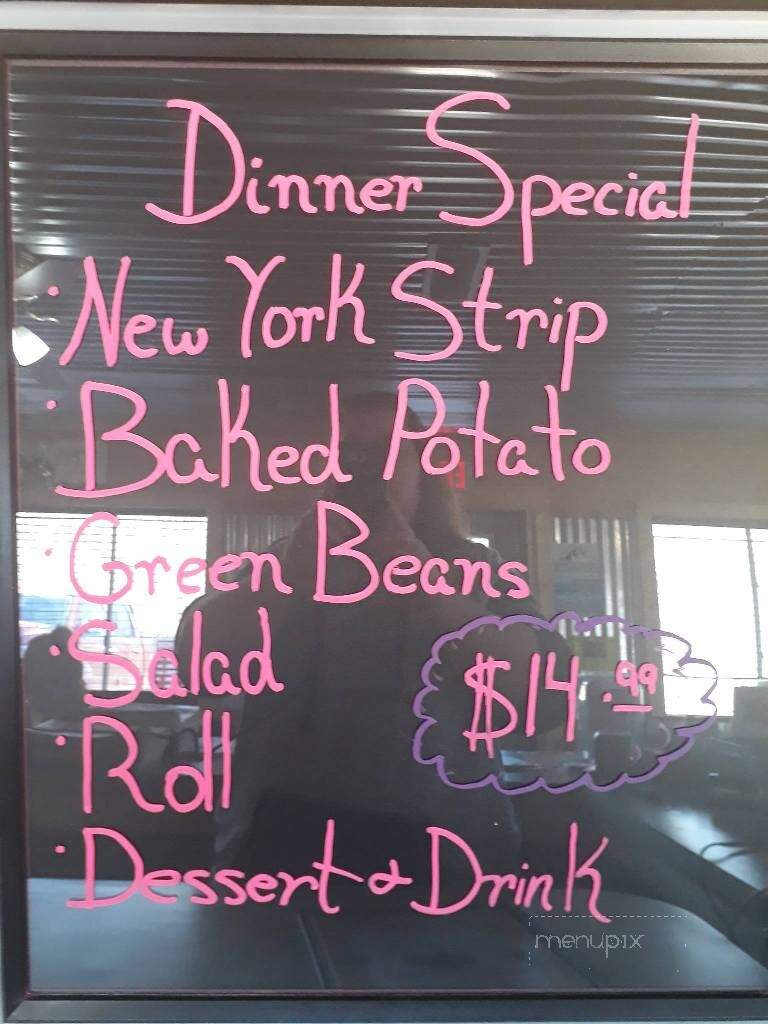 Dinner Special
· New York Strip
· Baked Potato
· Green Beans
· Salad
$14.99
· Roll
· Dessert & Drink
menupix